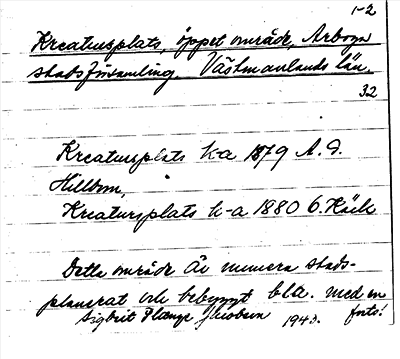 1-2
Kreatursplats, öppet område, Arboga
stadsförsamling Västmanlands län.
32
Kreatursplats k-a 1879 A. G.
Hillbom,
Kreatursplats k-a 1880 6. Räck
Detta område är numera stads-
planerat och bebyggt bl.a. med en
Sigbrit Plænge Jacobson 1943. forts!